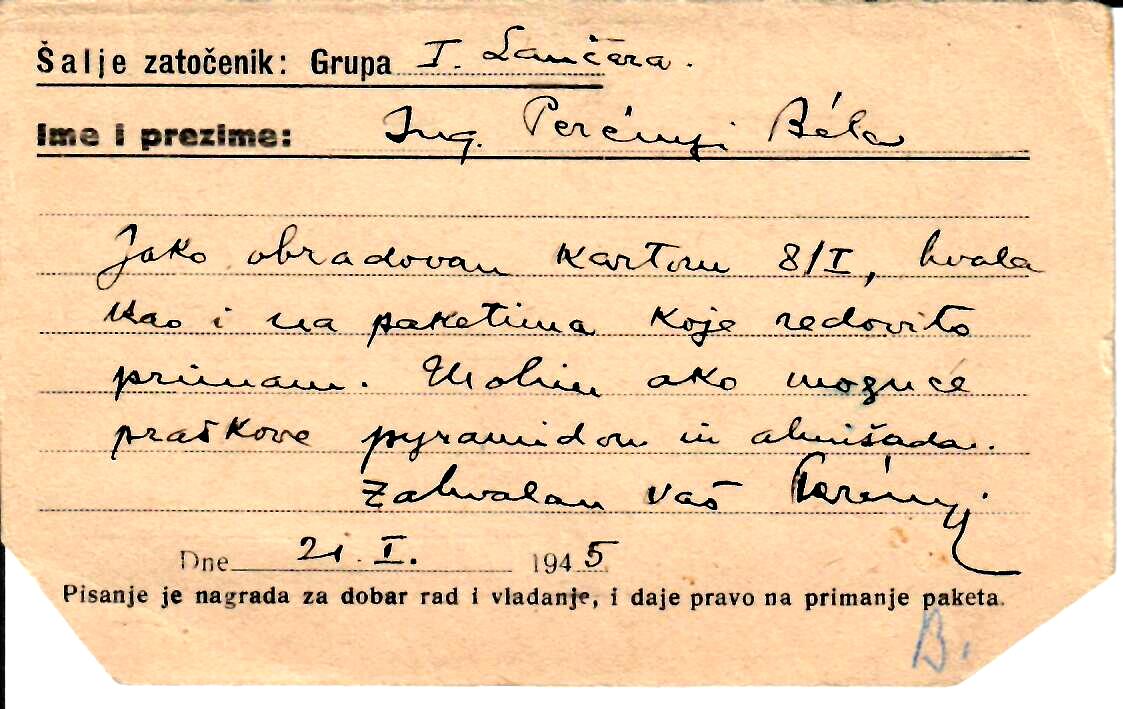 Šalje zatočenik: Grupa I. Lančara.
Ime i prezime: Ing. Perényi Béla
Jako obradovan kartom 8/I, hvala
kao i na paketima koje redovito
primam. Molim ako moguće
praškove pyramidon
Zahvalan Vaš Perényi
Dne 21. I. 1945
Pisanje je nagrada za dobar rad i vladanje, i daje pravo na primanje paketa.
B.